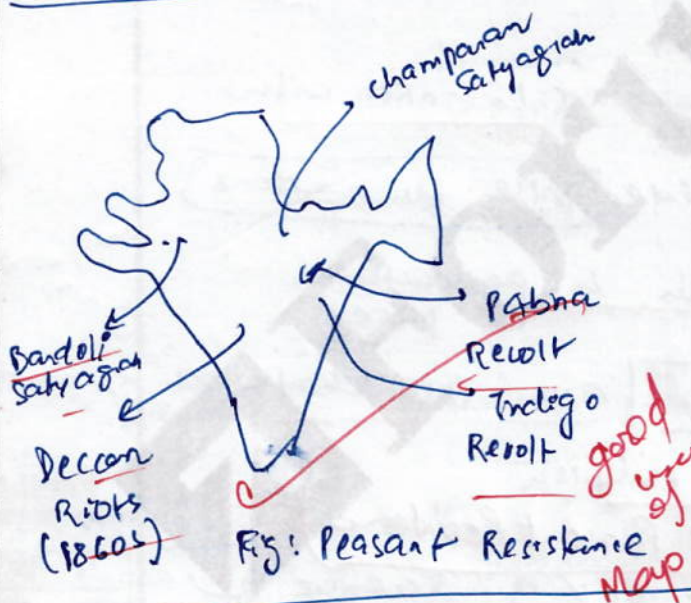 Champaran
Satyagrah
Bardoli
Satyagrah
Deccan
Riots
(1860s)
Pabna
Revolt
Indigo
Revolt
good
use
of
Map
Fig: Peasant Resistance
Forum